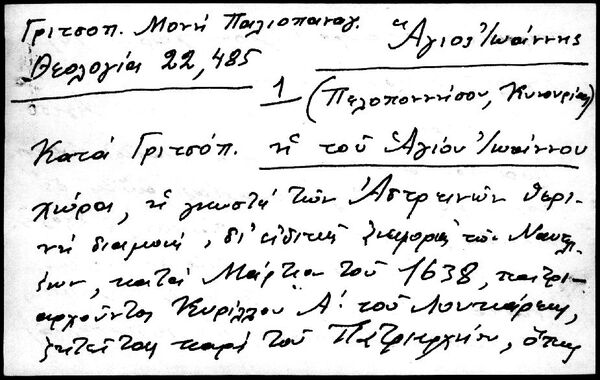 Γριτσοπ. Μονή Παλιοπαναγ.
Θεολογία 22, 485
Ἅγιος Ἰωάννης
1 (Πελοποννήσου, Κυνουρίας)
Κατά Γριτσόπ. ἡ τοῦ Ἁγίου Ἰωάννου
χώρα, ἡ γνωστή τῶν Ἀστρινῶν θερι-
νή διαμονή, δι' εἰδικῆς τῶν
κατά Μάρτιον τοῦ 1638, πατρι-
αρχοῦντος Κυρίλλου Α΄ τοῦ Λουκάρεως,
ζητεῖται παρά τοῦ Πατριαρχείου, ὅπως